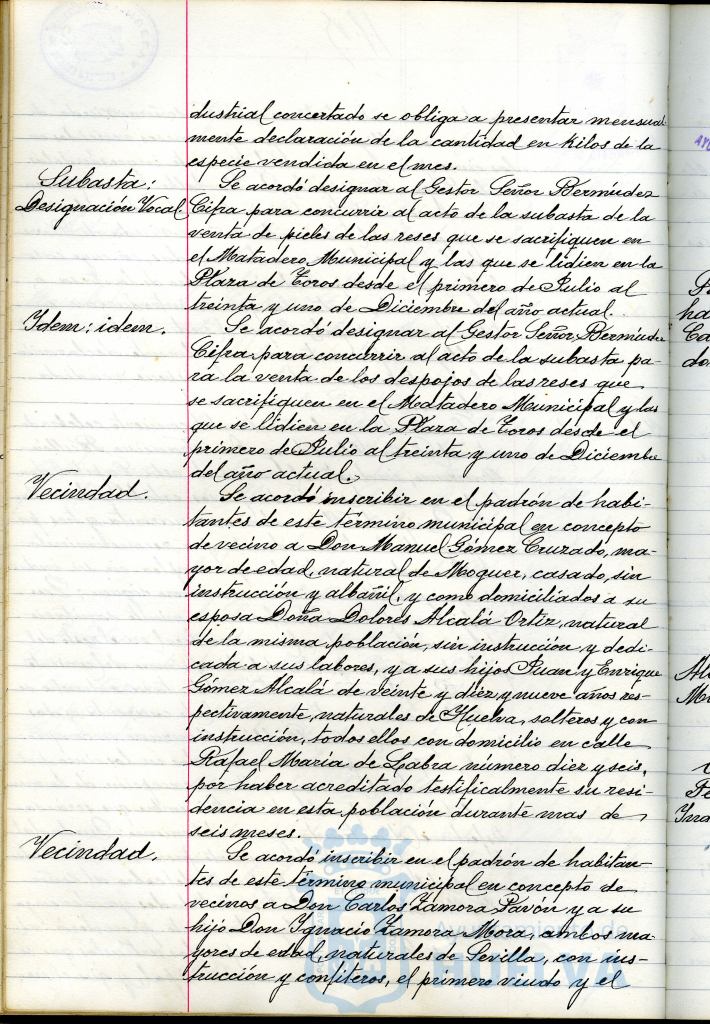 dustrial concertado se obliga a presentar mensual-
mente declaración de la cantidad en Kilos de la
especie vendida en el mes.
Subasta:
Designación Vocal.
Se acordó designar al Gestor Señor Bermúdez
Cifra para concurrir al acto de la subasta de la
venta de pieles de las reses que se sacrifiquen en
el Matadero Municipal y las que se lidien en la
Plaza de Toros desde el primero de Julio al
treinta y uno de Diciembre del año actual.
Idem: idem.
Se acordó designar al Gestor Señor Bermúdez
Cifra para concurrir al acto de la subasta pa-
ra la venta de los despojos de las reses que
se sacrifiquen en el Matadero Municipal y las
que se lidien en la Plaza de Toros desde el
primero de Julio al treinta y uno de Diciembre
del año actual.
Vecindad.
Se acordó inscribir en el padrón de habi-
tantes de este término municipal en concepto
de vecino a Don Manuel Gómez Cruzado, ma-
yor de edad, natural de Moguer, casado, sin
instrucción y albañil, y como domiciliados a su
esposa Doña Dolores Alcalá Ortiz, natural
de la misma población, sin instrucción y dedi-
cada a sus labores, y a sus hijos Juan y Enrique
Gómez Alcalá de veinte y diez y nueve años res-
pectivamente, naturales de Huelva, solteros y con
instrucción, todos ellos con domicilio en calle
Rafael María de Labra número diez y seis,
por haber acreditado testificalmente su resi-
dencia en esta población durante mas de
seis meses.
Vecindad.
Se acordó inscribir en el padrón de habitan-
tes de este término municipal en concepto de
vecinos a Don Carlos Zamora Pavón y a su
hijo Don Ignacio Zamora Mora, ambos ma-
yores de edad, naturales de Sevilla, con ins-
trucción y confiteros, el primero viudo y el
HUELVA